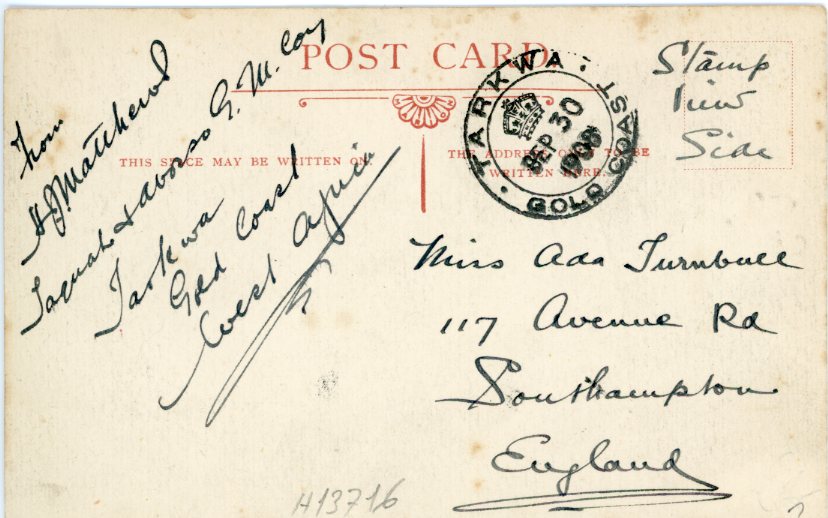 POST CARD.
THIS SPACE MAY BE WRITTEN ON.
THE ADDRESS ONLY TO BE
WRITTEN HERE.
From
H.J. Matthews
Taquah & Abosso G. M. Coy
Tarkwa
Gold Coast
West Africa
TARKWA · GOLD COAST ·
SEP 30
1908
Stamp
View
Side
Miss Ada Turnbull
117 Avenue Rd
Southampton
England
H13716